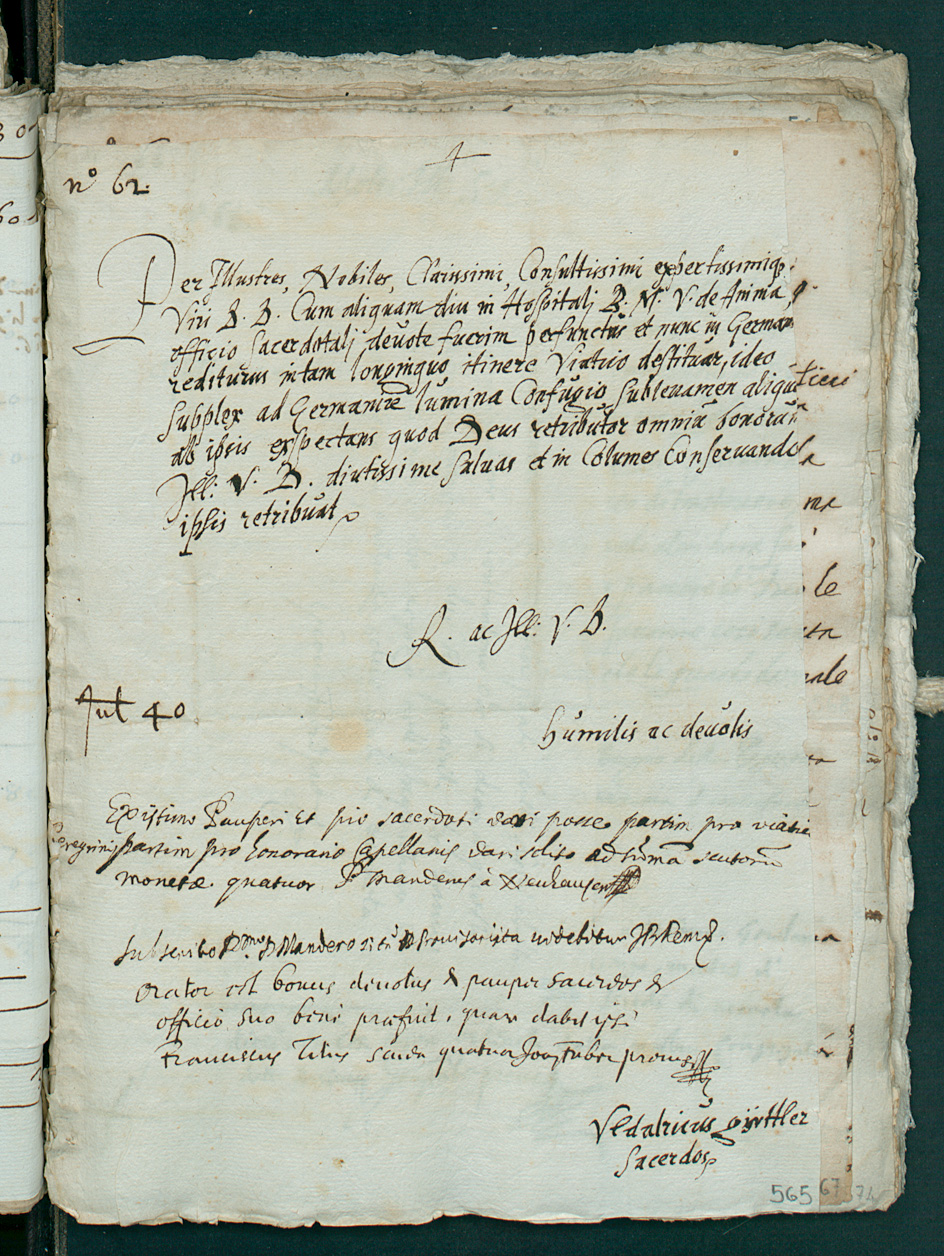 nº 62.
Per Illustres, Nobiles, Clarissimi, Consultissimi expertissimiq.
Viri D. D. Cum aliquam diu in Hospitalj B. M. V. de Anima
officio sacerdotalj devote fuerim perfunctus et nunc in German
rediturus in tam longinquo itinere Viatico destituar, ideo
supplex ad Germaniæ lumina Confugio sublevamen aliqu
ab ipsis exspectans quod Deus retributor omniũ bonorum
Ill: V. D. diutissime saluas et in Columes Conservando
ipsis retribuat
R. ac Ill: V. D.
Jul 40
humilis ac devotis
Existimo Pauperi et pio sacerdoti dari posse partim pro viatico
peregrinis partim pro honorario Capellanis dari solito ad summã scutorũ
monetæ quatuor. P Manderus à Neuhausen
Subscribo D. Mandero ita videbitur
orator est bonus devotus & pauper sacerdos &
officio suo bene præfuit, quare dabis ipsi
Franciscus Titius scuda quatuor
Vldalricus gürttler
Sacerdos
565 67 74